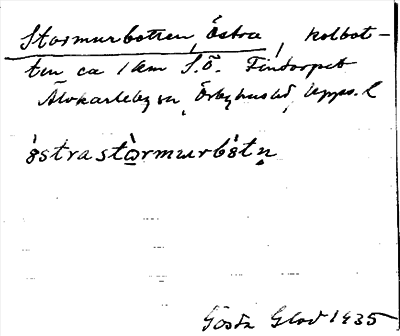 Stormurbotten, Östra, kolbot-
ten ca 1 km S.Ö. Findorpet
Älvkarleby sn, Örbyhus hd, Upps. l
östra stòrmurbòtn̥
Gösta Glad 1935